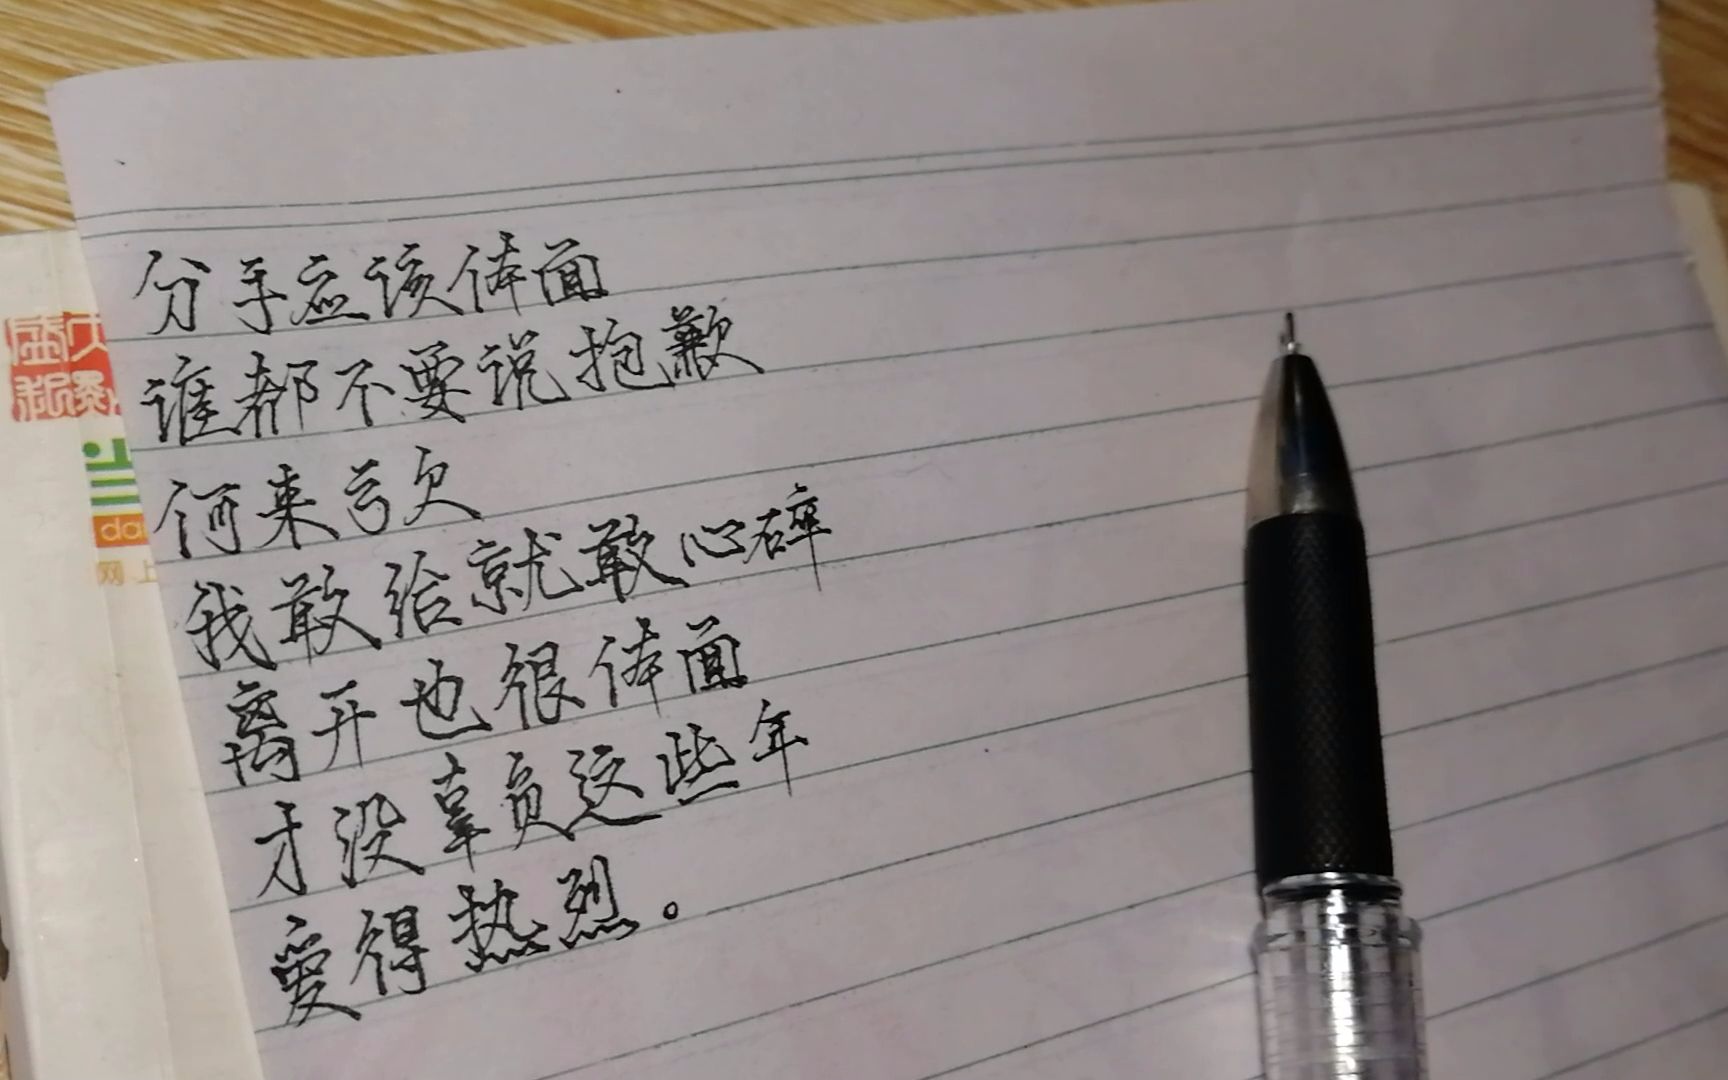 分手应该体面
谁都不要说抱歉
何来亏欠
我敢给就敢心碎
离开也很体面
才没辜负这些年
爱得热烈。
da
网上